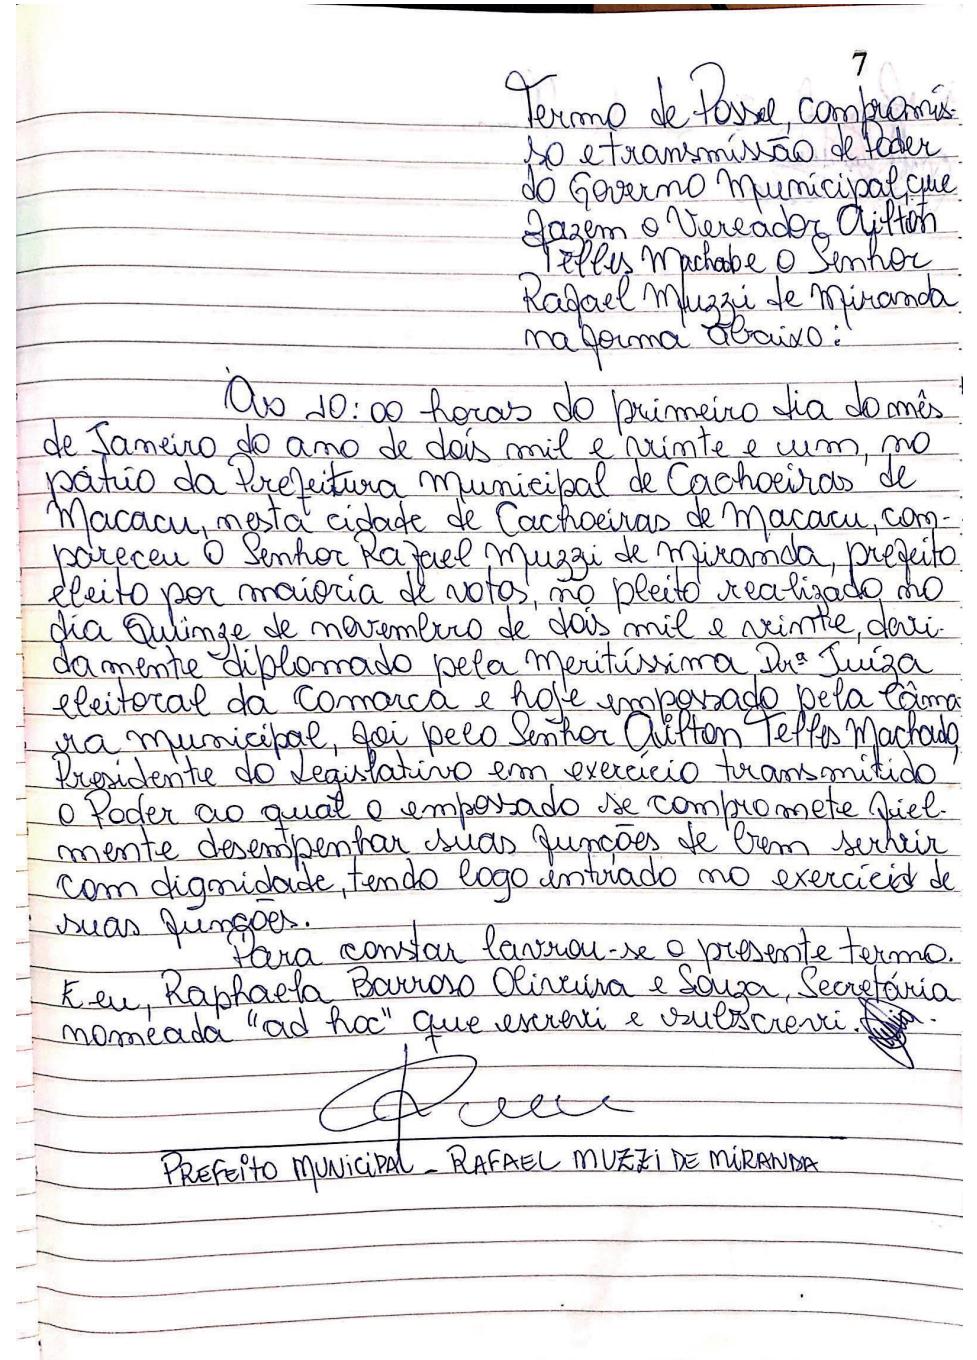 7
Termo de Posse, compromis-
so e transmissão de Poder
do Governo Municipal, que
fazem o Vereador Ailton
Telles Machado e o Senhor
Rafael Muzzi de Miranda
na forma abaixo:
Às 10:00 horas do primeiro dia do mês
de Janeiro do ano de dois mil e vinte e um, no
pátio da Prefeitura Municipal de Cachoeiras de
Macacu, nesta cidade de Cachoeiras de Macacu, com-
pareceu o Senhor Rafael Muzzi de Miranda, prefeito
eleito por maioria de votos, no pleito realizado no
dia Quinze de novembro de dois mil e vinte, devi-
damente diplomado pela Meritíssima Drª Juíza
eleitoral da Comarca e hoje empossado pela Câma-
ra Municipal, foi pelo Senhor Ailton Telles Machado,
Presidente do Legislativo em exercício transmitido
o Poder ao qual o empossado se compromete fiel-
mente desempenhar suas funções de bem servir
com dignidade, tendo logo entrado no exercício de
suas funções.
Para constar lavrou-se o presente termo.
E eu, Raphaela Barroso Oliveira e Souza, Secretária
nomeada "ad hoc" que escrevi e subscrevi.
PREFEITO MUNICIPAL - RAFAEL MUZZI DE MIRANDA